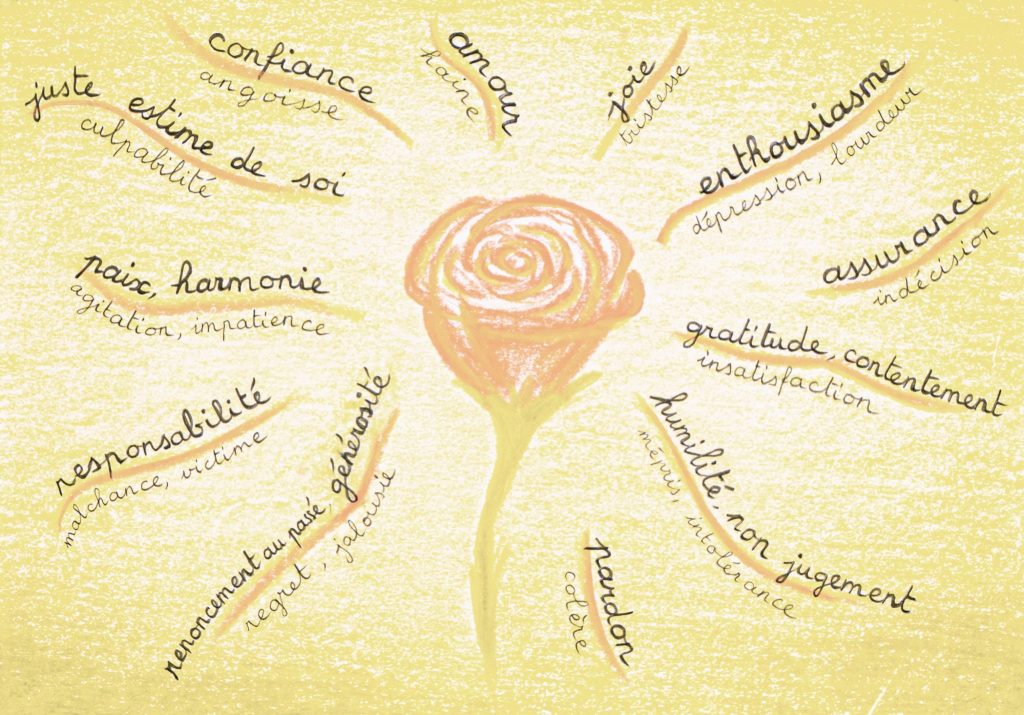 confiance
angoisse
amour
haine
joie
tristesse
enthousiasme
dépression, lourdeur
juste estime de soi
culpabilité
assurance
indécision
paix, harmonie
agitation, impatience
gratitude, contentement
insatisfaction
responsabilité
malchance, victime
renoncement au passé, générosité
regret, jalousie
humilité, non jugement
mépris, intolérance
pardon
colère